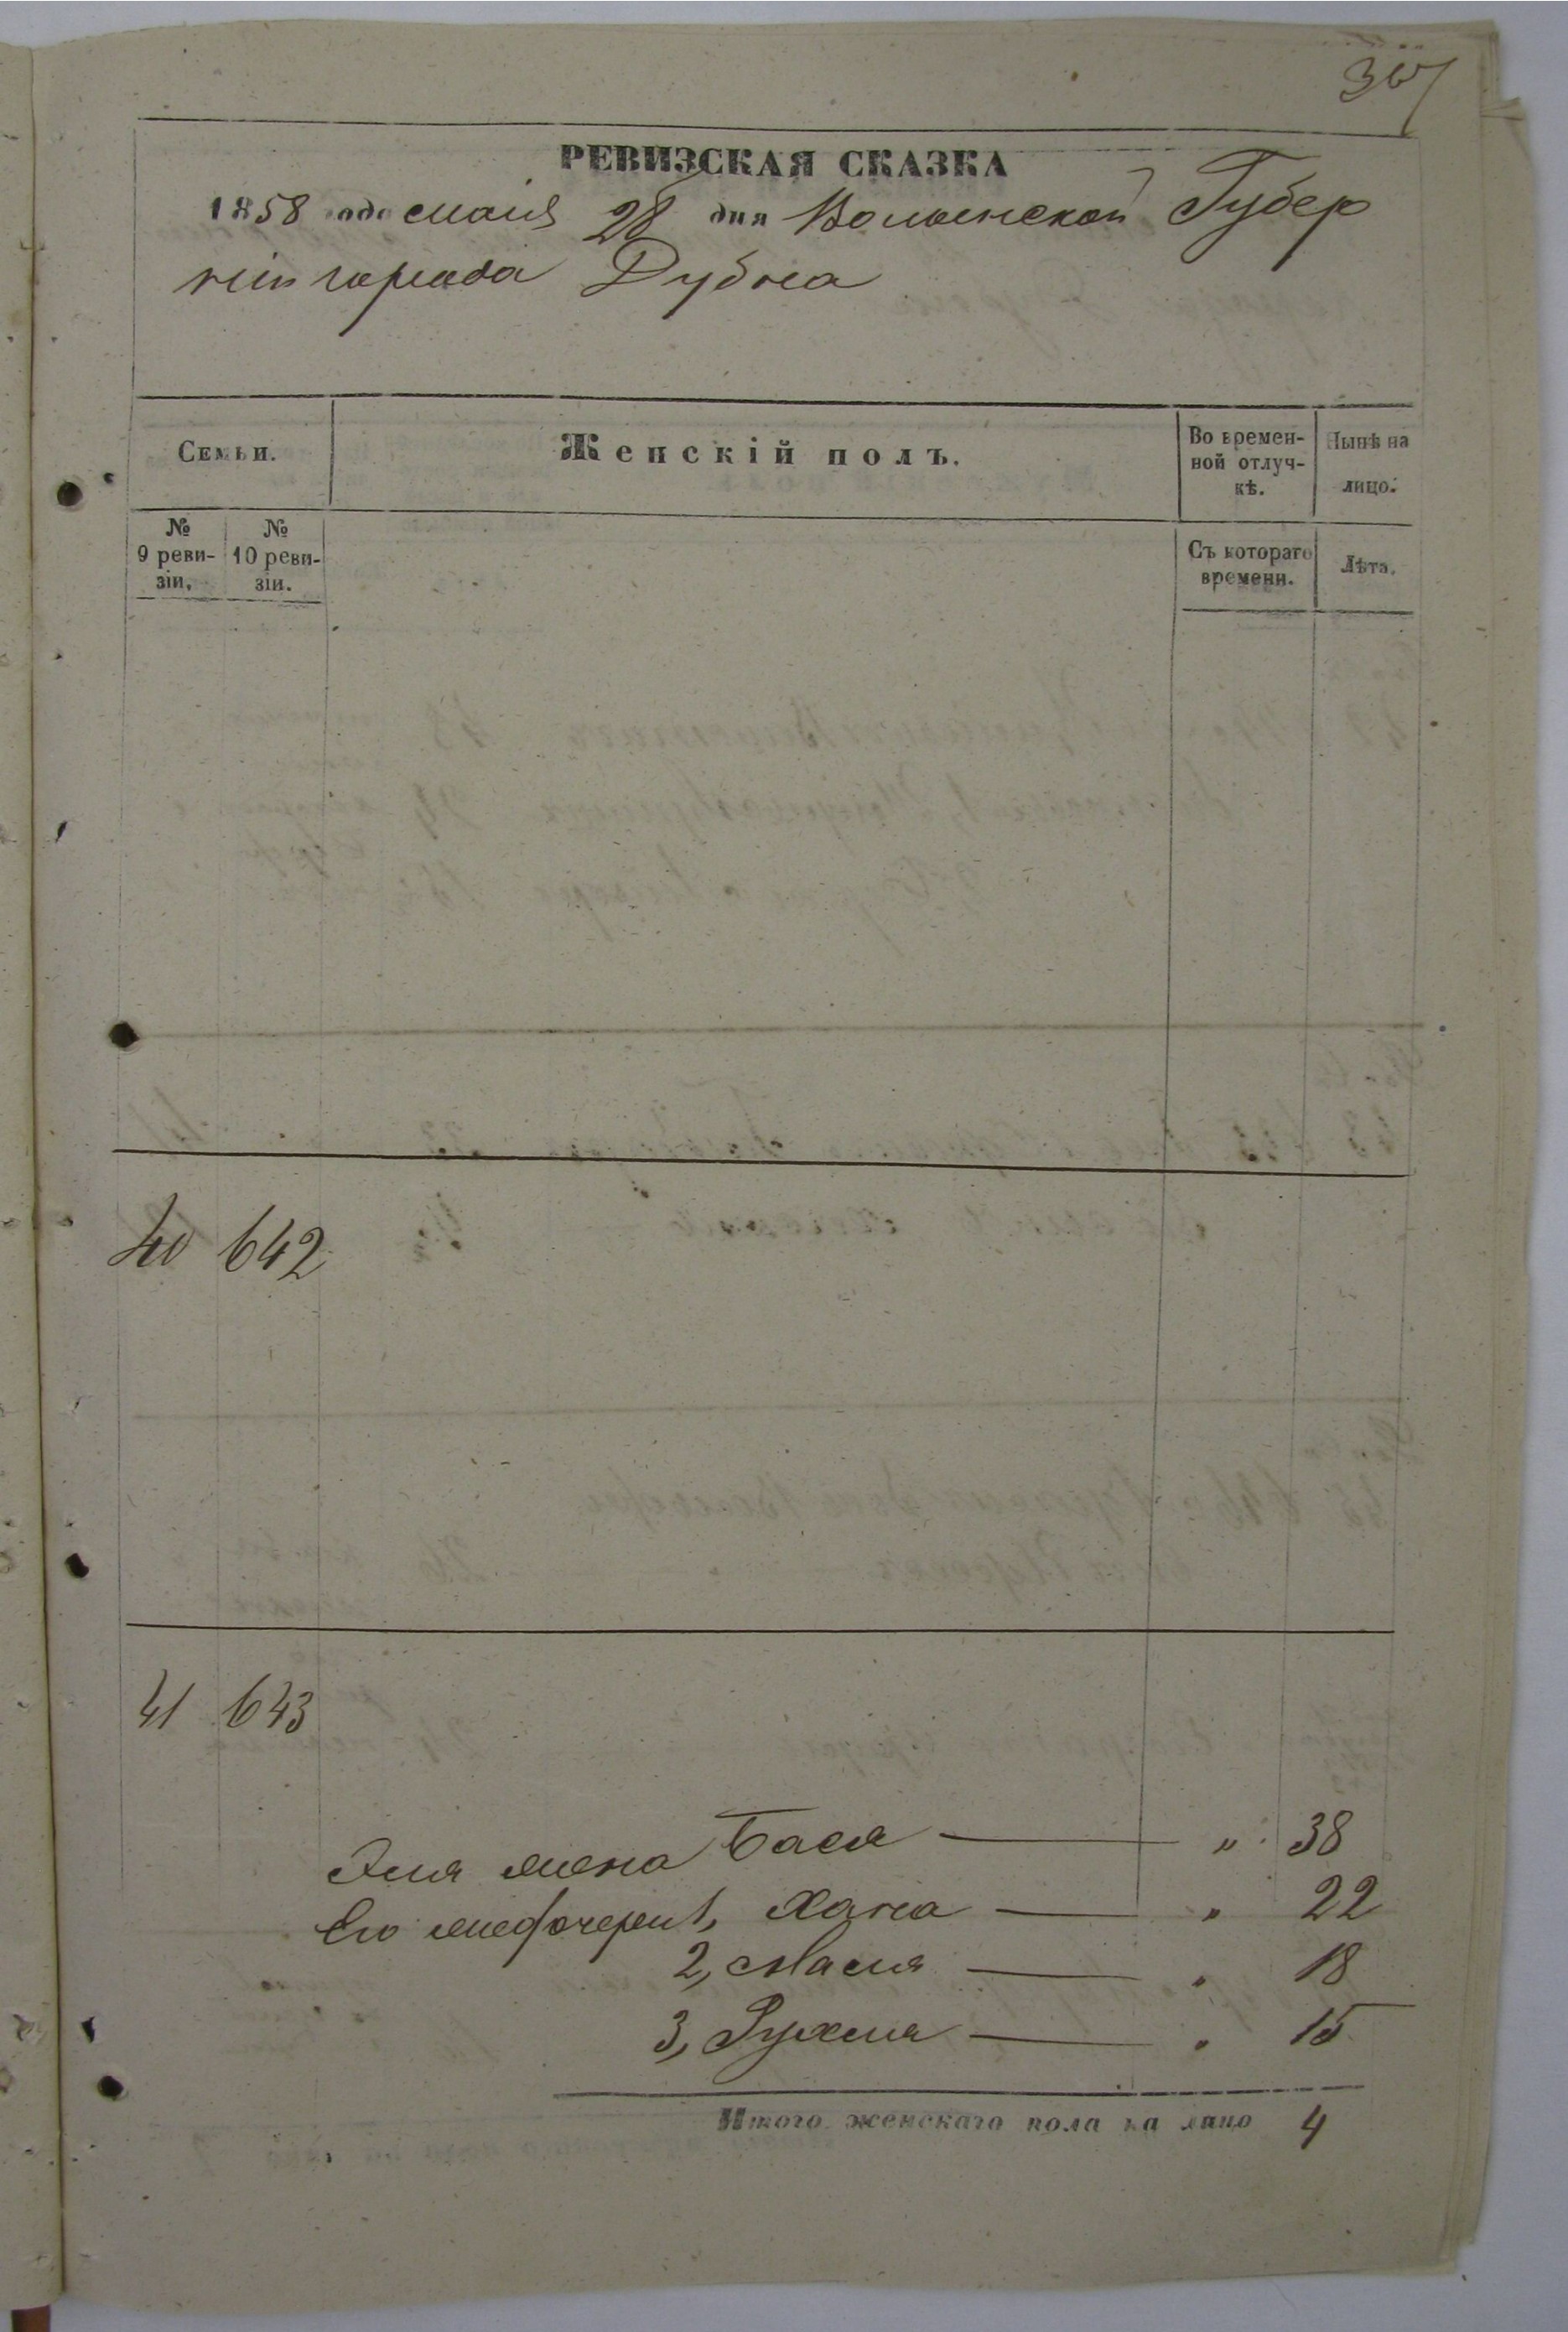 РЕВИЗСКАЯ СКАЗКА
1858 года маія 28 дня Волынской Губер
ніи города Дубна
Семьи.
Женскій полъ.
Во времен-
ной отлуч-
кѣ.
Нынѣ на
лицо.
№
9 реви-
зіи.
№
10 реви-
зіи.
Съ котораго
времени.
Лѣта.
40 642
41 643
жена Бася — „ 38
Его дочери 1, Хана — „ 22
2, Мася — „ 18
3, Рухля — „ 15
Итого женскаго пола на лицо 4